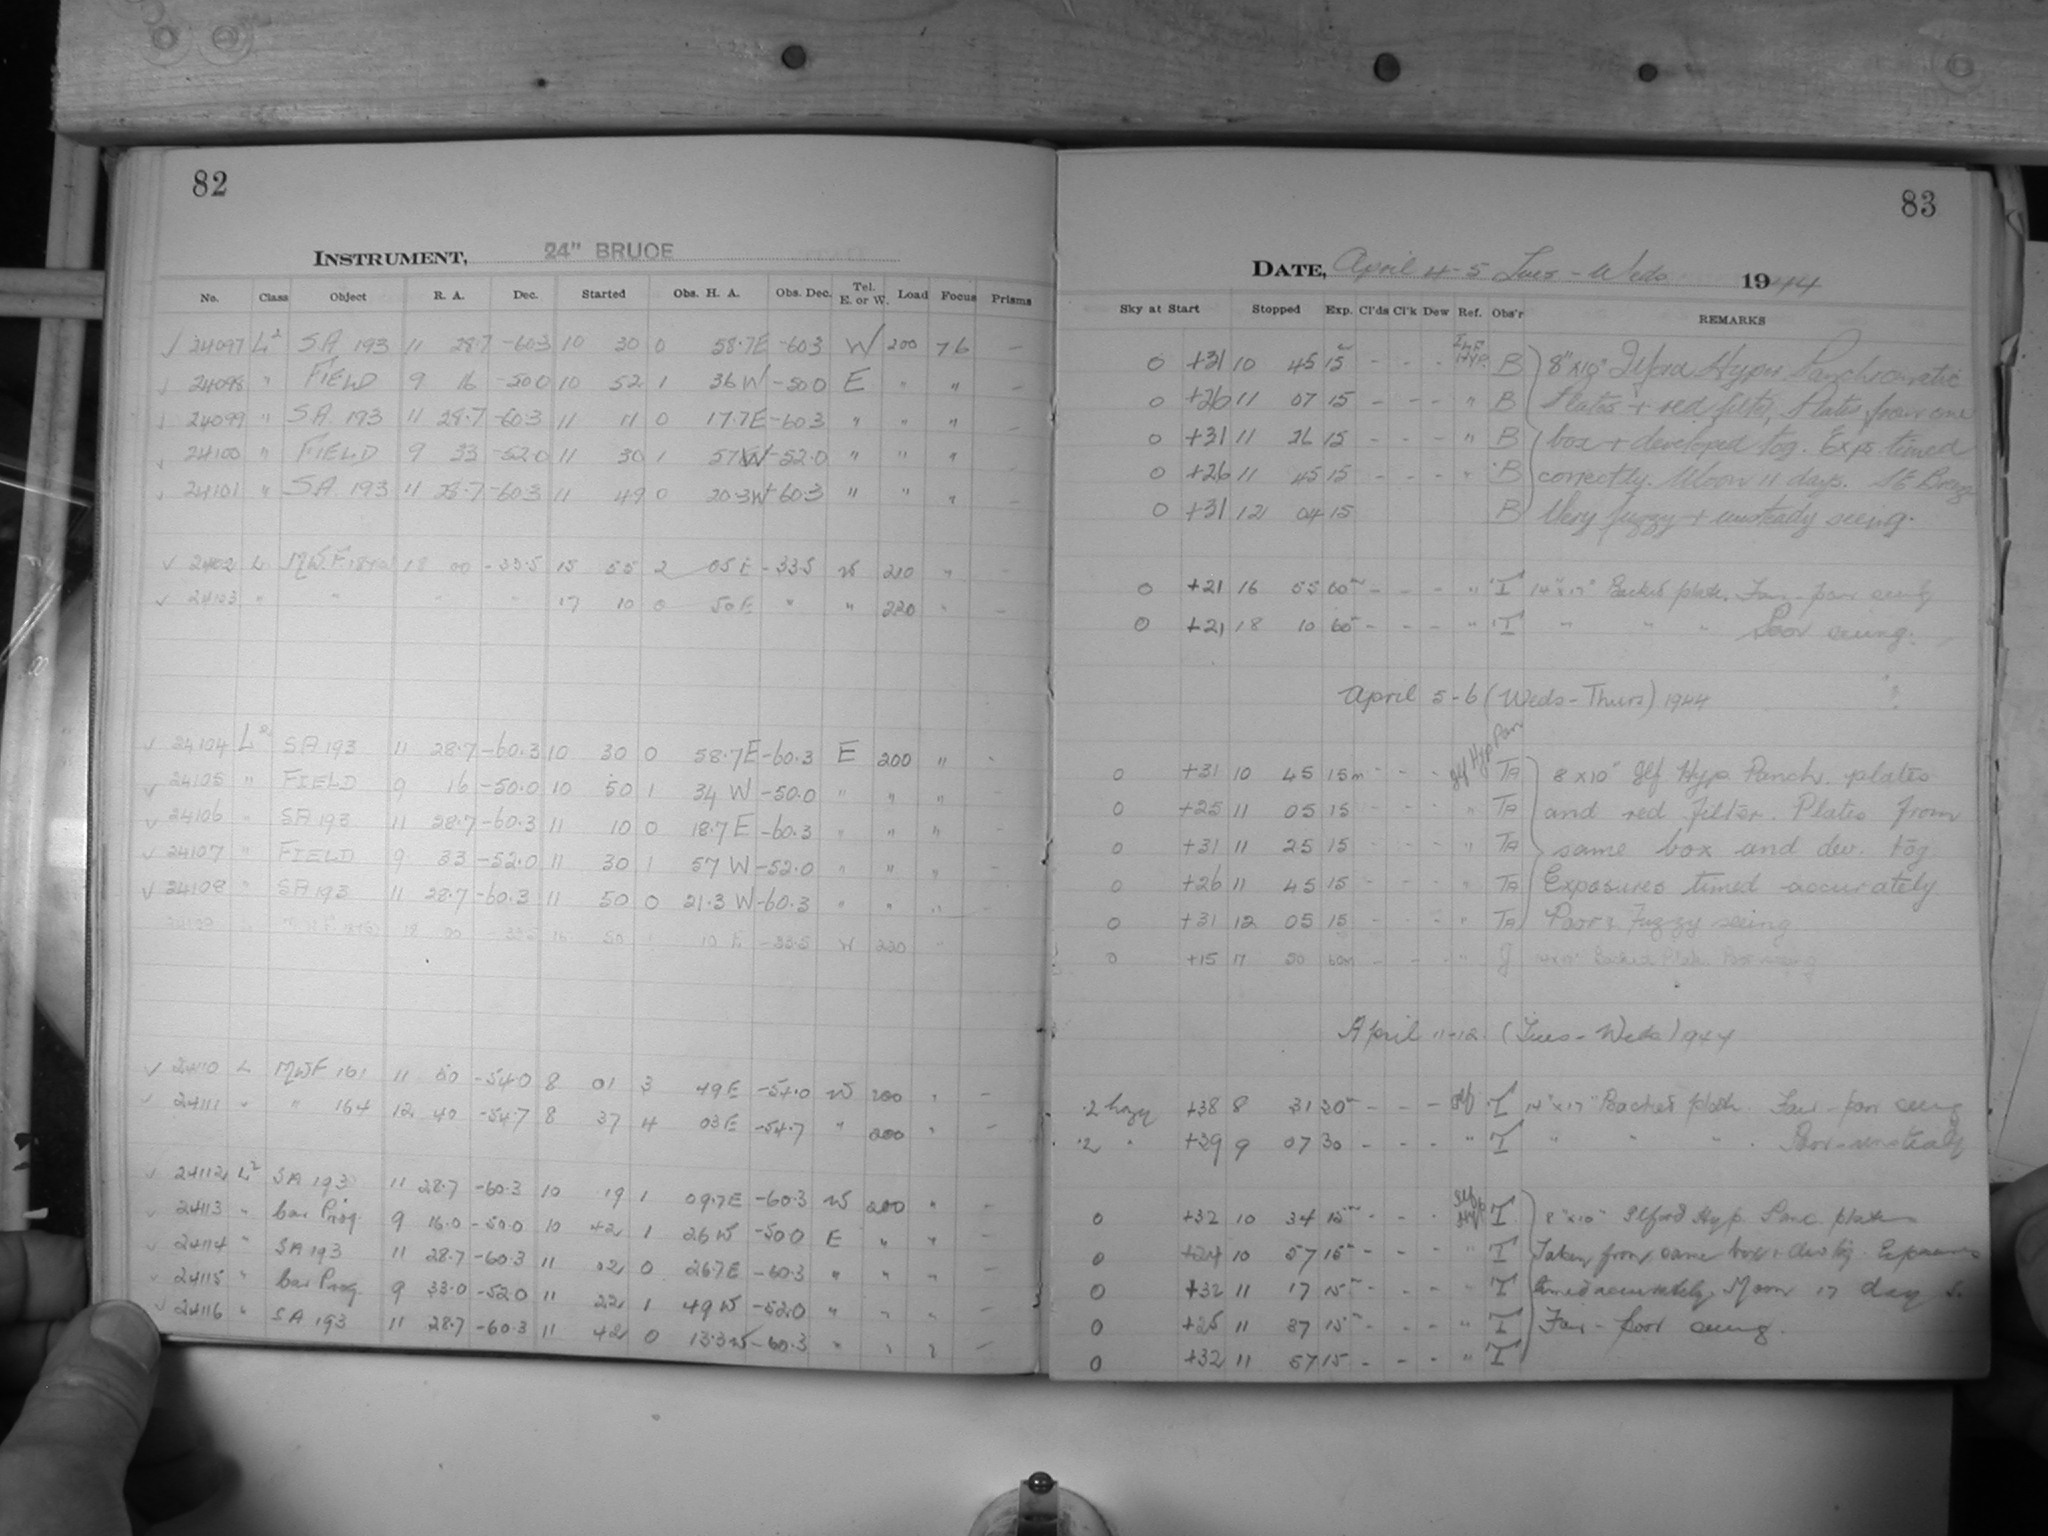 82
INSTRUMENT, 24" BRUCE
No. Class Object R. A. Dec. Started Obs. H. A. Obs. Dec. Tel. E. or W. Load Focus Prisms
24097 L² SA 193 11 28.7 -60.3 10 30 0 58.7E -60.3 W 200 76 -
24098 " FIELD 9 16 -50.0 10 52 1 36W -50.0 E " "
24099 " SA 193 11 28.7 -60.3 11 11 0 17.7E -60.3 " " " -
24100 " FIELD 9 33 -52.0 11 30 1 57W -52.0 " " " -
24101 " SA 193 11 28.7 -60.3 11 49 0 20.3W -60.3 " " " -
L 18 00 -33.5 15 55 2 05E -33.5 W 210 " -
24103 " " " " 17 10 0 50E " " 220 " -
24104 L² SA 193 11 28.7 -60.3 10 30 0 58.7E -60.3 E 200 " -
24105 " FIELD 9 16 -50.0 10 50 1 34 W -50.0 " " " -
24106 " SA 193 11 28.7 -60.3 11 10 0 18.7E -60.3 " " " -
24107 " FIELD 9 33 -52.0 11 30 1 57 W -52.0 " " " -
24108 " SA 193 11 28.7 -60.3 11 50 0 21.3 W -60.3 " " " -
18 00 -33.5 16 50 1 10 E -33.5 W 220 "
24110 L MWF 161 11 50 -54.0 8 01 3 49E -54.0 W 200 " -
24111 " " 164 12 40 -54.7 8 37 4 03E -54.7 " 200 " -
24112 L² SA 193 11 28.7 -60.3 10 19 1 09.7E -60.3 W 200 " -
24113 " Prog. 9 16.0 -50.0 10 42 1 26W -50.0 E " " -
24114 " SA 193 11 28.7 -60.3 11 02 0 26.7E -60.3 " " " -
24115 " Prog. 9 33.0 -52.0 11 22 1 49W -52.0 " " " -
24116 " SA 193 11 28.7 -60.3 11 42 0 13.3W -60.3 " " " -
83
DATE, April 4-5 Tues - Weds 1944
Sky at Start Stopped Exp. Cl'ds Cl'k Dew Ref. Obs'r REMARKS
0 +31 10 45 15m - - - B 8"x10" Ilford Hyper Panchromatic
0 +26 11 07 15 - - - " B Plates + red filter, Plates from one
0 +31 11 26 15 - - - " B box + developed tog. Exps timed
0 +26 11 45 15 - - - " B correctly. Moon 11 days. SE Breeze
0 +31 12 04 15 B Very fuzzy + unsteady seeing.
0 +21 16 55 60m - - - " T 14"x17" Backed plate. Fair - poor seeing
0 +21 18 10 60m - - - " T " " " Poor seeing.
April 5-6 (Weds-Thurs) 1944
0 +31 10 45 15m - - - Ilf Hyp Pan TA 8 x10" Ilf Hyp. Panch. plates
0 +25 11 05 15 - - - " TA and red filter. Plates from
0 +31 11 25 15 - - - " TA same box and dev. tog
0 +26 11 45 15 - - - " TA Exposures timed accurately
0 +31 12 05 15 - - - " TA Poor & Fuzzy seeing
0 +15 17 50 60m - - " J Backed Plate. Poor seeing
April 11-12. (Tues-Weds) 1944
.2 hazy +38 8 31 30m - - - Ilf T 14"x17" Backed plate. Fair - poor seeing
.2 " +39 9 07 30 - - - " T " " " Poor - unsteady
0 +32 10 34 15m - - - Ilf Hyp T 8"x10" Ilford Hyp. Panc. plates
0 +24 10 57 15m - - - " T Taken from same box + dev tog. Exposures
0 +32 11 17 15m - - - " T timed accurately. Moon 17 days.
0 +25 11 37 15m - - - " T Fair - poor seeing.
0 +32 11 57 15 - - - " T